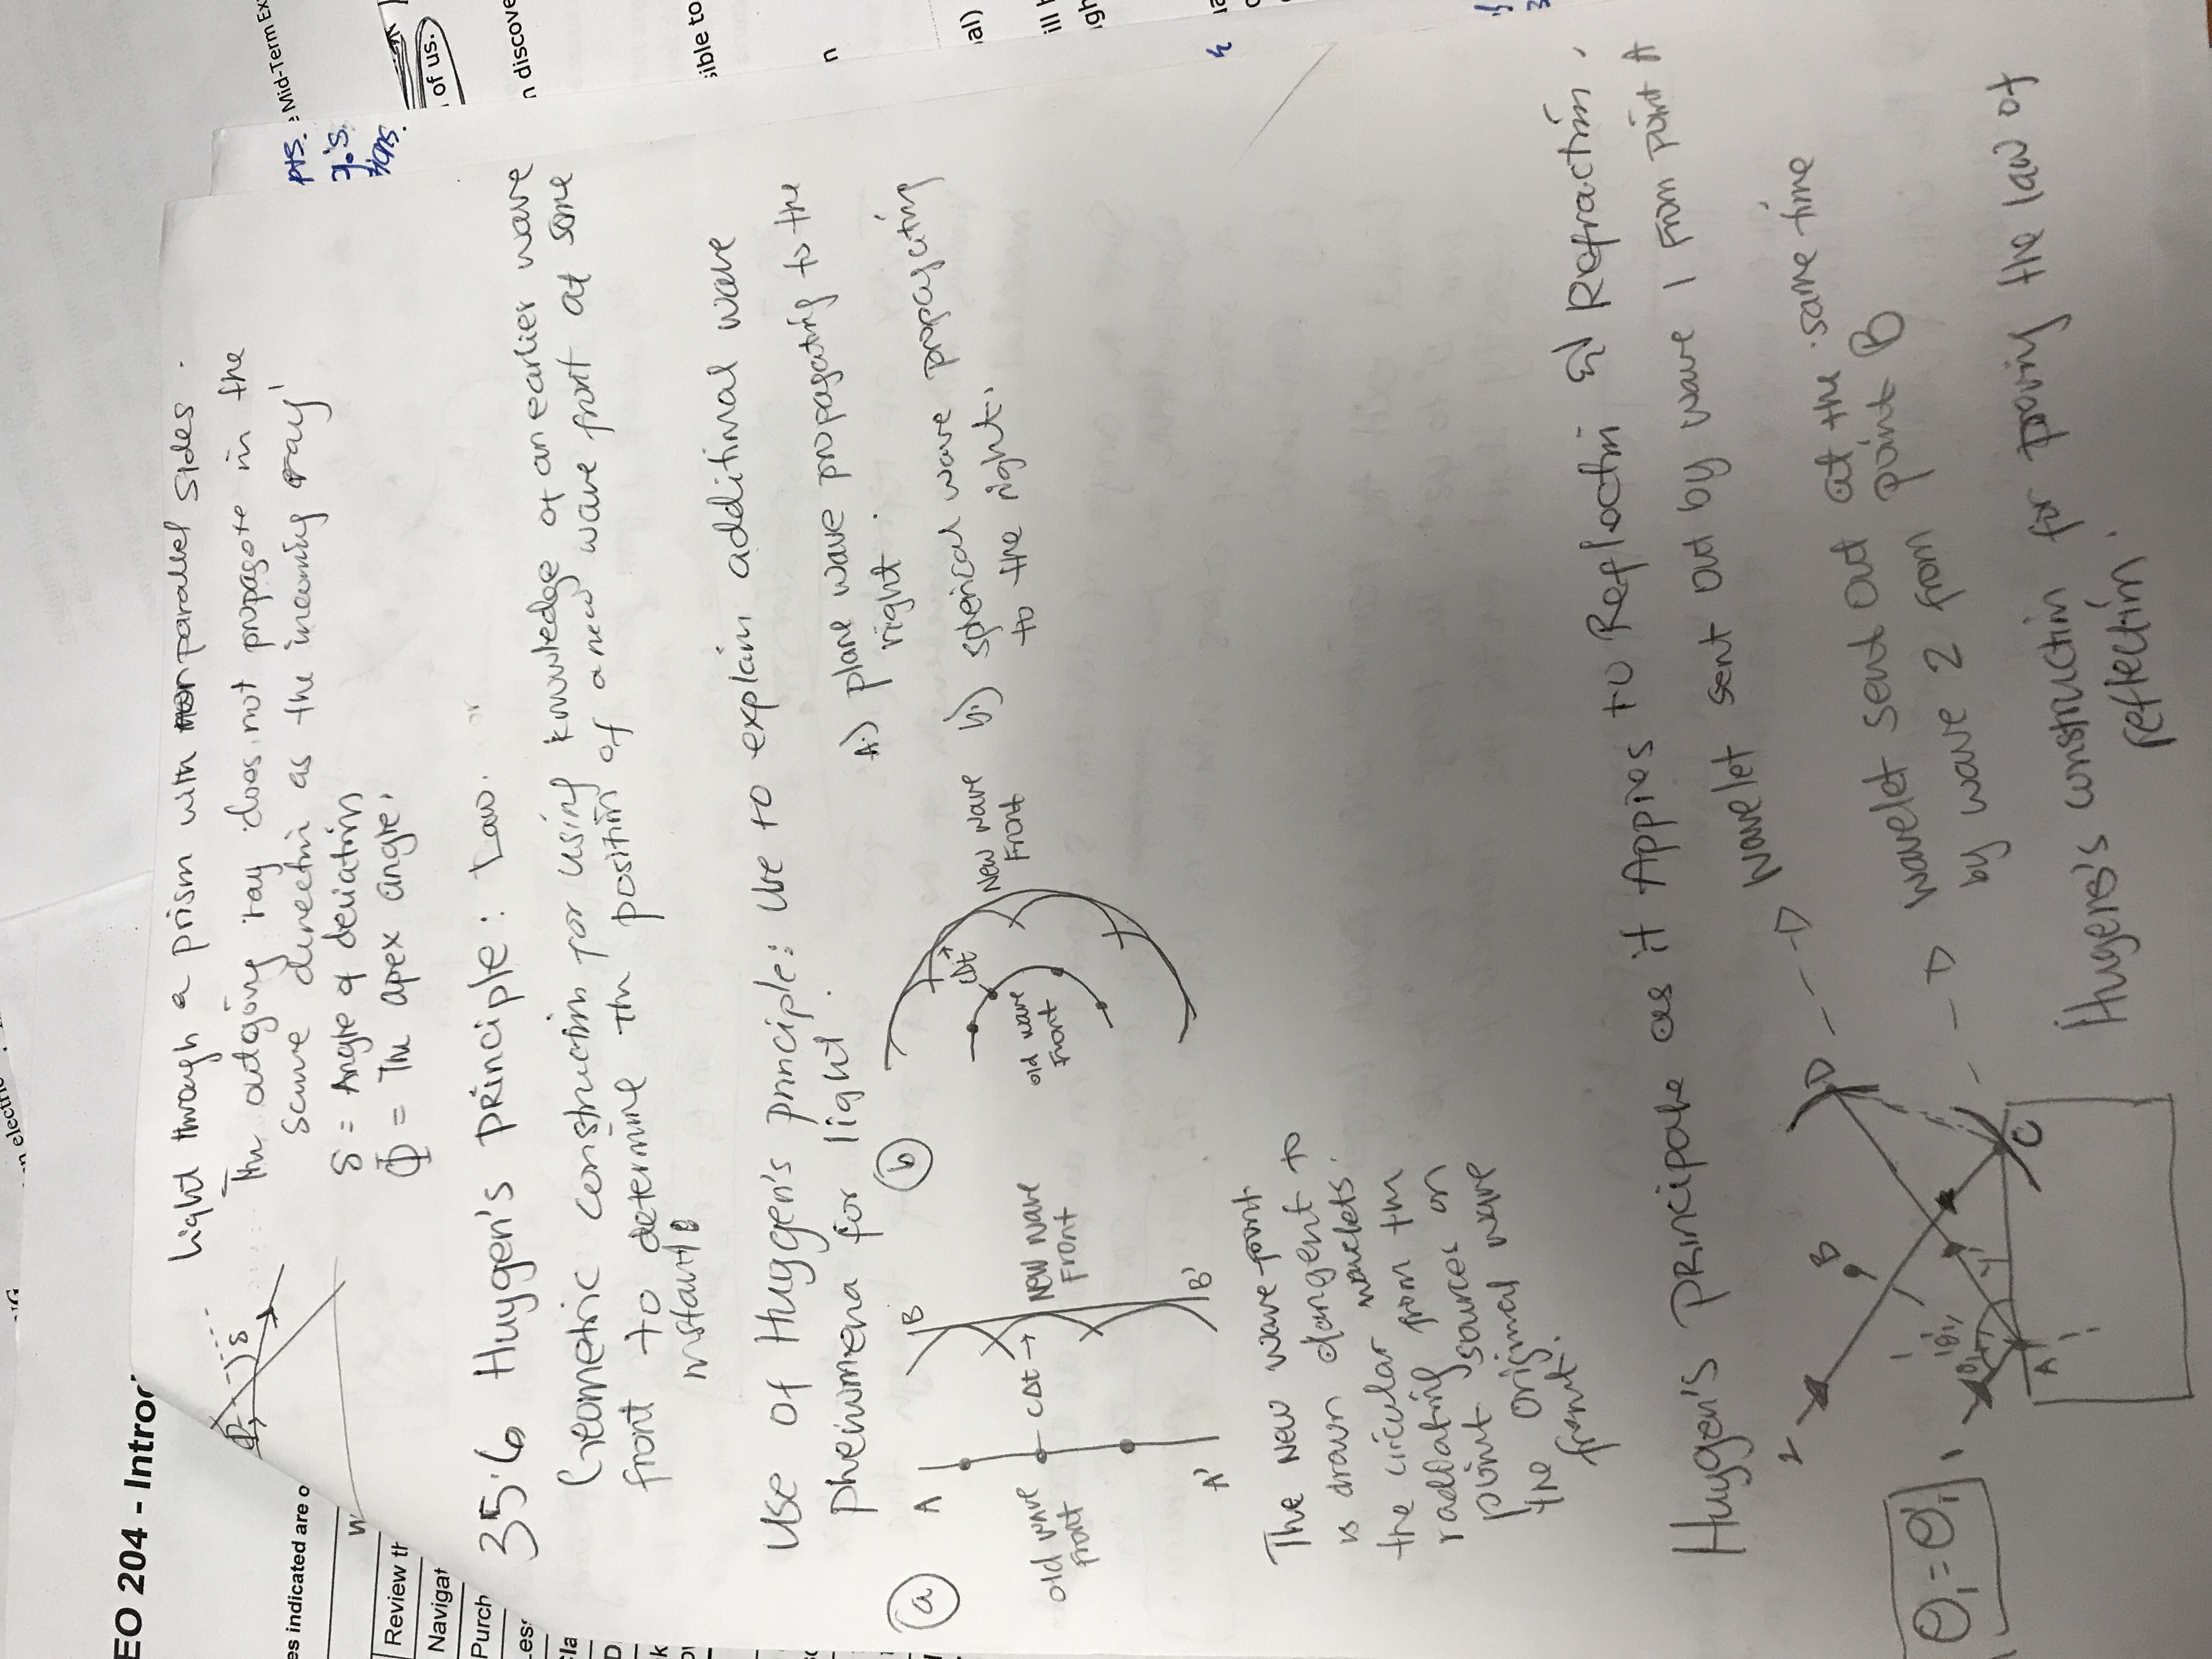 Light through a prism with nonparallel sides.
The outgoing ray does not propagate in the
same direction as the incoming ray!
δ = Angle of deviation
Φ = The apex angle.
Φ
δ
35.6 Huygen's principle: Law.
Geometric construction for using knowledge of an earlier wave
front to determine the position of a new wave front at some
instant
Use of Huygen's principle: Use to explain additional wave
phenomena for light.
A.) plane wave propagating to the
right.
b.) spherical wave propagating
to the right.
a
A
B
old wave
front
cΔt →
New wave
Front
A'
B'
b
cΔt
old wave
Front
New wave
Front
The New wave front
is drawn tangent to
the circular wavelets
radiating from the
point sources on
the original wave
front.
Huygen's Principale as it Appies to Reflection & Refraction.
Wavelet sent out by wave 1 from point A
wavelet sent out at the same time
by wave 2 from point B
Huygens's construction for proving the law of
reflection.
2
B
D
1
A
C
θ₁ = θ₁'
EO 204 - Intror
es indicated are o
W
Review th
Navigat
Purch
Less
Cla
D
n electric
Mid-Term Ex
of us.
n discove
sible to
n
al)
ill
pts.